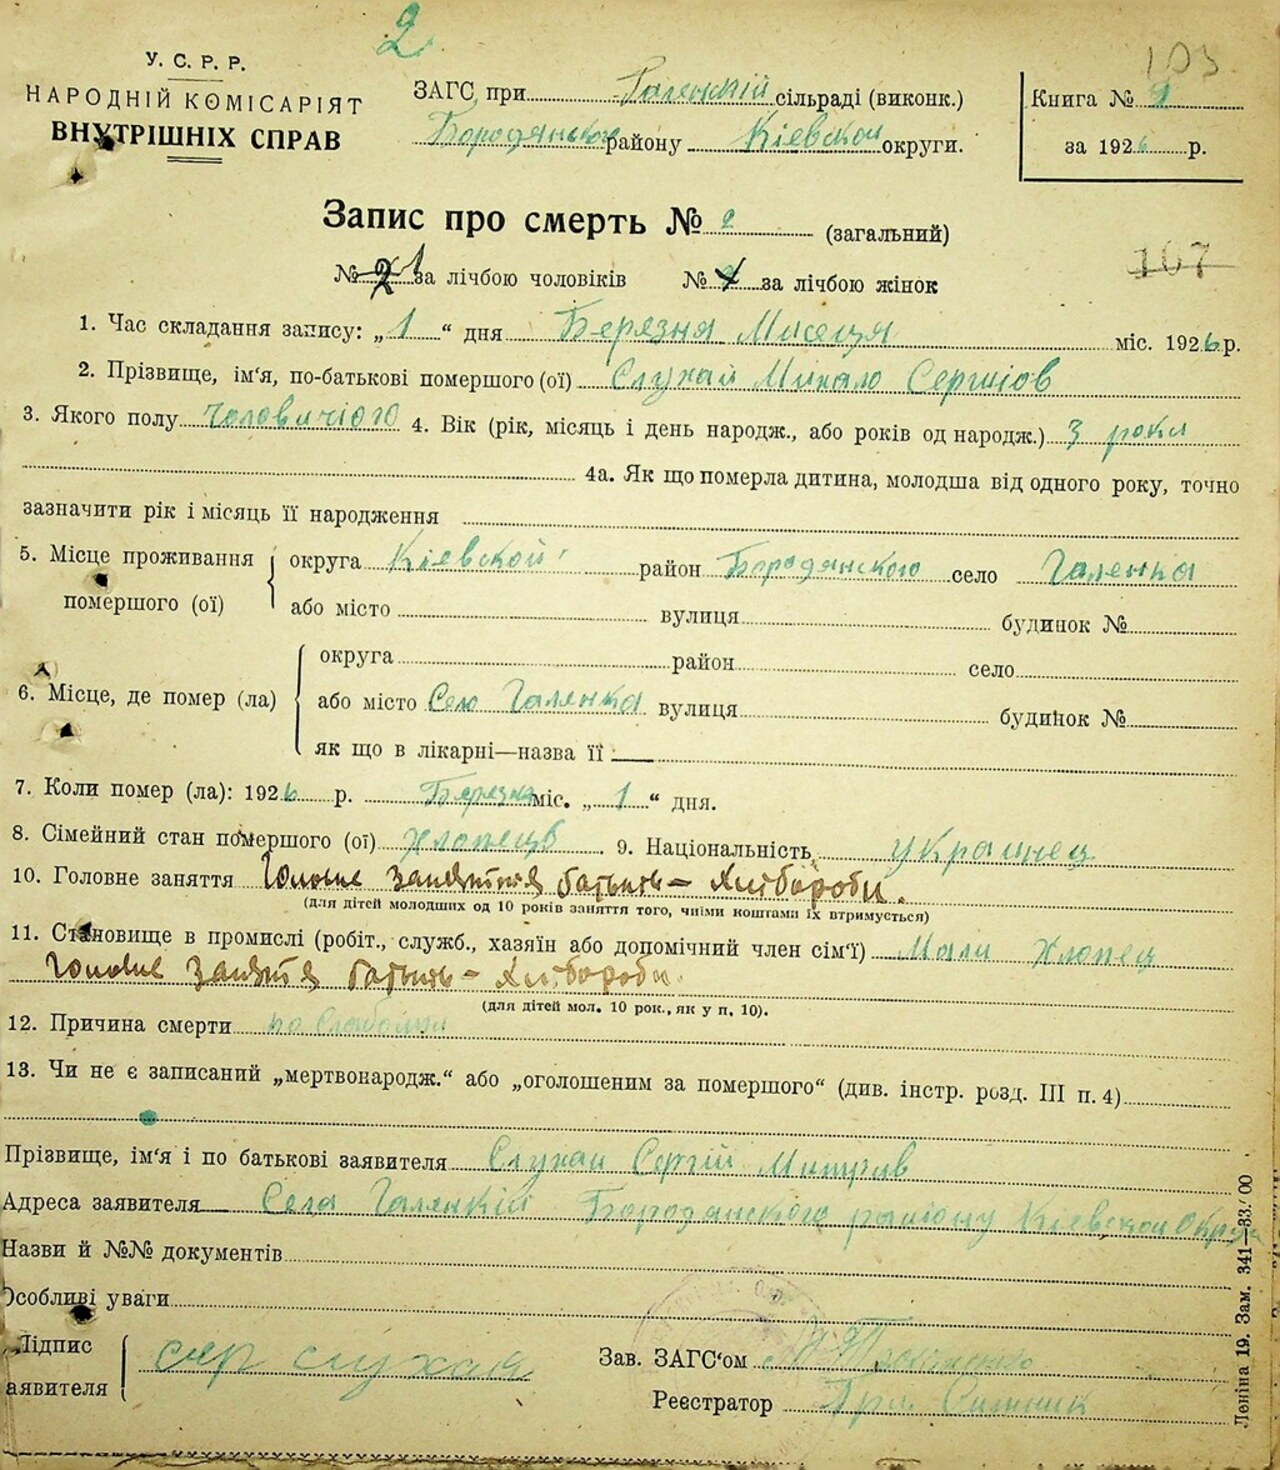 2
103
У. С. Р. Р.
НАРОДНІЙ КОМІСАРІЯТ
ВНУТРІШНІХ СПРАВ
ЗАГС при Галенскій сільраді (виконк.)
Бородянского району Кіевской округи.
Книга № 1
за 1926 р.
Запис про смерть № 2 (загальний)
№ 2 1 за лічбою чоловіків № за лічбою жінок
107
1. Час складання запису: „ 1 “ дня Березня Мисеця міс. 1926 р.
2. Прізвище, ім‘я, по-батькові помершого (ої) Слухай Микало Сергііов
3. Якого полу чоловичіого 4. Вік (рік, місяць і день народж., або років од народж.) 3 роки
4а. Як що померла дитина, молодша від одного року, точно
зазначити рік і місяць її народження
5. Місце проживання помершого (ої) округа Кіевской район Бородянского село Галенка
або місто вулиця будинок №
6. Місце, де помер (ла) округа район село
або місто Село Галенка вулиця будинок №
як що в лікарні—назва її
7. Коли помер (ла): 1926 р. Березня міс. „ 1 “ дня.
8. Сімейний стан помершого (ої) хлопець 9. Національність украинец
10. Головне заняття Головне заняття батьків – Хлібороби.
(для дітей молодших од 10 років заняття того, чиїми коштами їх втримується)
11. Становище в промислі (робіт., служб., хазяїн або допомічний член сім‘ї) Мали хлопец
Головне заняття батьків – Хлібороби.
(для дітей мол. 10 рок., як у п. 10).
12. Причина смерти по
13. Чи не є записаний „мертвонародж.“ або „оголошеним за помершого“ (див. інстр. розд. III п. 4)
Прізвище, ім‘я і по батькові заявителя Слухай Сергій
Адреса заявителя Села Галенкій Бородянского району Кіевской Округи
Назви й №№ документів
Особливі уваги
Підпис заявителя сер слухая
Зав. ЗАГС‘ом
Реєстратор
Леніна 19. Зам. 341—33/00